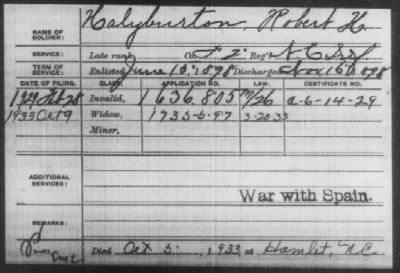 NAME OF SOLDIER: Halyburton, Robert H.
SERVICE: Late rank, Co. F 2" Reg't N C Inf.
TERM OF SERVICE: Enlisted June 16, 1898 Discharged Nov 15, 1898
DATE OF FILING. CLASS. APPLICATION NO. LAW. CERTIFICATE NO.
Invalid, 1 636.805 a-6-14-29
1933 Oct 9 Widow, 3-20-33
Minor,
ADDITIONAL SERVICES:
War with Spain.
REMARKS:
Died Oct 5, 1933, at Hamlet, N.C.